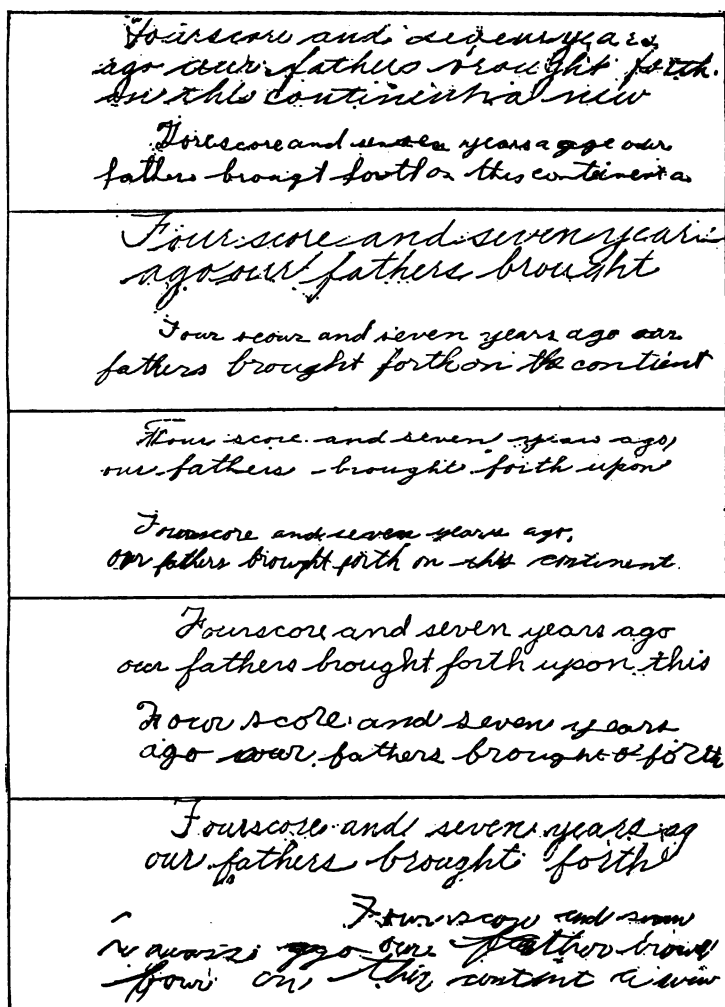 Fourscore and seven years
ago our fathers brought forth
on this continent a new
Forescore and seven years a ago our
fathers brougt forth on this conteinent a
Four score and seven years
ago our fathers brought
Four scour and seven years ago our
fathers brought forth on the contient
Four score and seven years ago,
our fathers brought forth upon
Fourscore and seven years ago,
our fathers brought forth on this continent.
Fourscore and seven years ago
our fathers brought forth upon this
Four score and seven years
ago our fathers brought forth
Fourscore and seven years ag
our fathers brought forth
Four score and seven
ago our father
on this content a